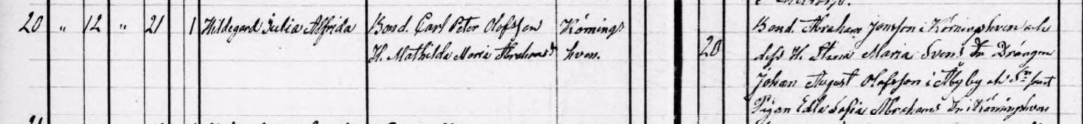 20 " 12 " 21 1 Hildegard Julia Alfrida Bond. Carl Peter Olofsson Körnings
H. Mathilda Maria Abrahamsdr hvem.
20 Bond. Abraham Jonsson i Körningshvem och
dess H. Stina Maria Svens Dr Drängen
Johan August Olofsson i Åbyby och
Pigan Edla Sofia Abrahams Dr i Körningshvem